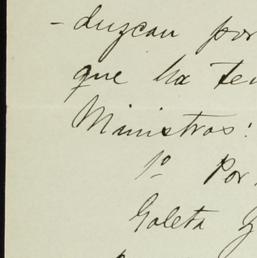 - duzcan por
que ha ten
Ministros:
1º Por
Goleta y